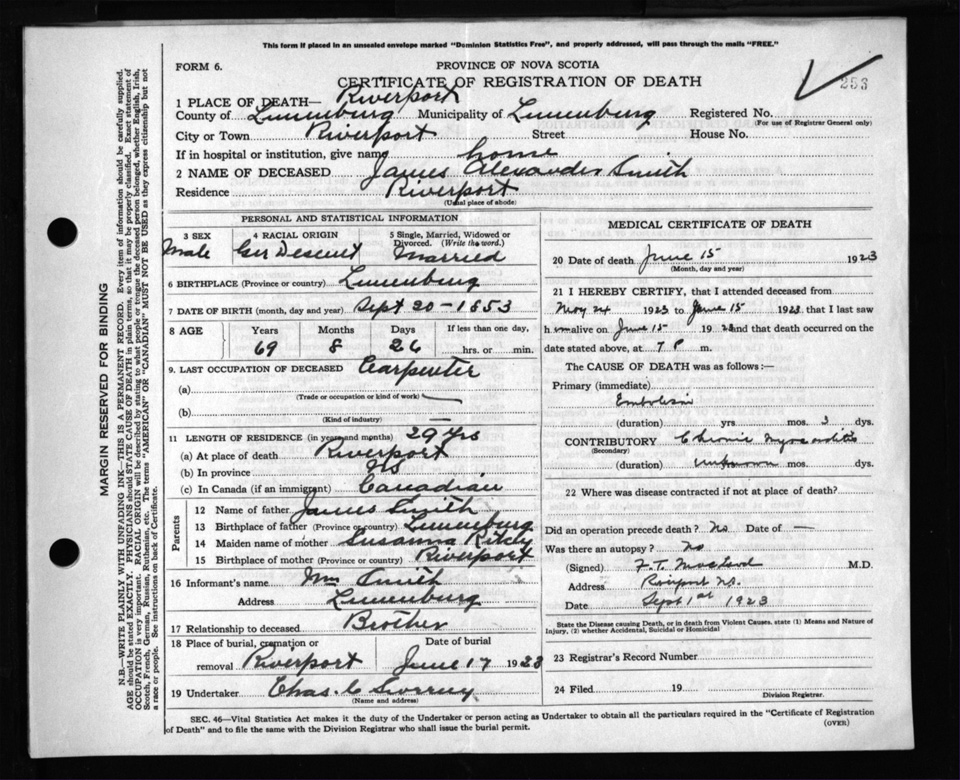 This form if placed in an unsealed envelope marked "Dominion Statistics Free", and properly addressed, will pass through the mails "FREE."
FORM 6.
PROVINCE OF NOVA SCOTIA
CERTIFICATE OF REGISTRATION OF DEATH
253
1 PLACE OF DEATH— Riverport
County of Lunenburg Municipality of Lunenburg Registered No.
(For use of Registrar General only)
City or Town Riverport Street House No.
If in hospital or institution, give name home
2 NAME OF DECEASED James Alexander Smith
Residence Riverport
(Usual place of abode)
PERSONAL AND STATISTICAL INFORMATION
3 SEX
Male
4 RACIAL ORIGIN
Ger Descent
5 Single, Married, Widowed or Divorced. (Write the word.)
Married
6 BIRTHPLACE (Province or country) Lunenburg
7 DATE OF BIRTH (month, day and year) Sept 20-1853
8 AGE Years Months Days If less than one day,
69 8 26 hrs. or min.
9. LAST OCCUPATION OF DECEASED Carpenter
(a)
(Trade or occupation or kind of work)
(b) —
(Kind of industry)
11 LENGTH OF RESIDENCE (in years and months) 29 yrs
(a) At place of death Riverport
(b) In province NS
(c) In Canada (if an immigrant) Canadian
Parents
12 Name of father James Smith
13 Birthplace of father (Province or country) Lunenburg
14 Maiden name of mother Susanna
15 Birthplace of mother (Province or country) Riverport
16 Informant's name Smith
Address Lunenburg
17 Relationship to deceased Brother
18 Place of burial, cremation or removal Riverport
Date of burial
June 17 1923
19 Undertaker Chas. C
(Name and address)
MEDICAL CERTIFICATE OF DEATH
20 Date of death June 15 1923
(Month, day and year)
21 I HEREBY CERTIFY, that I attended deceased from
May 24 1923 to June 15 1923 that I last saw
him alive on June 15 1923 and that death occurred on
date stated above, at 7 P m.
The CAUSE OF DEATH was as follows:—
Primary (immediate)
Embolism
(duration) yrs mos. 3 dys.
CONTRIBUTORY Chronic Myocarditis
(Secondary)
(duration) unknown mos. dys.
22 Where was disease contracted if not at place of death?
Did an operation precede death? No Date of —
Was there an autopsy? No
(Signed) F.T. M.D.
Address Riverport N.S.
Date Sept 1st 1923
State the Disease causing Death, or in death from Violent Causes, state (1) Means and Nature of
Injury, (2) whether Accidental, Suicidal or Homicidal
23 Registrar's Record Number
24 Filed 19
Division Registrar.
SEC. 46—Vital Statistics Act makes it the duty of the Undertaker or person acting as Undertaker to obtain all the particulars required in the "Certificate of Registration
of Death" and to file the same with the Division Registrar who shall issue the burial permit.
(OVER)
MARGIN RESERVED FOR BINDING
N.B.—WRITE PLAINLY WITH UNFADING INK—THIS IS A PERMANENT RECORD. Every item of information should be carefully supplied.
AGE should be stated EXACTLY. PHYSICIANS should STATE CAUSE OF DEATH in plain terms, so that it may be properly classified. Exact statement of
OCCUPATION is very important. RACIAL ORIGIN will be described by stating to what people or tongue the deceased person belonged, whether English, Irish,
Scotch, French, German, Russian, Ruthenian, etc. The terms "AMERICAN" OR "CANADIAN" MUST NOT BE USED as they express citizenship but not
a race or people. See instructions on back of Certificate.